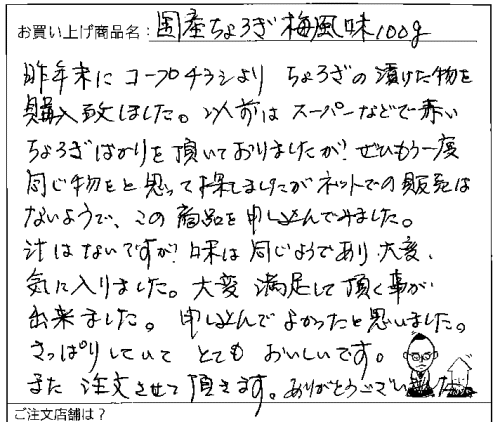 お買い上げ商品名：国産ちょろぎ梅風味100g
昨年末にコープチラシより ちょろぎの漬けた物を
購入致しました。以前はスーパーなどで赤い
ちょろぎばかりを頂いておりましたが！ぜひもう一度
同じ物をと思って探しましたがネットでの販売は
ないようで、この商品を申し込んでみました。
汁はないですが！味は同じようであり大変、
気に入りました。大変満足して頂く事が
出来ました。申し込んでよかったと思いました。
さっぱりしていて とても おいしいです。
また 注文させて頂きます。ありがとうございました
ご注文店舗は？